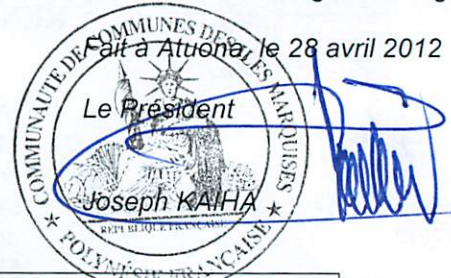 Fait à Atuona, le 28 avril 2012
Le Président
Joseph KAIHA
COMMUNAUTE DE COMMUNES DES ILES MARQUISES
REPUBLIQUE FRANCAISE
★ POLYNÉSIE FRANÇAISE ★